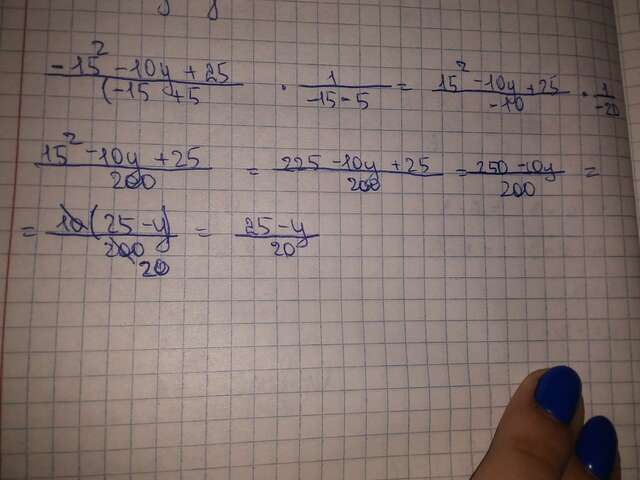 (-15² - 10y + 25)/((-15 + 5) · 1/(-15 - 5) = (15² - 10y + 25)/(-10) · 1/(-20)
(15² - 10y + 25)/200 = (225 - 10y + 25)/200 = (250 - 10y)/200 =
= 10(25 - y)/200 20 = (25 - y)/20